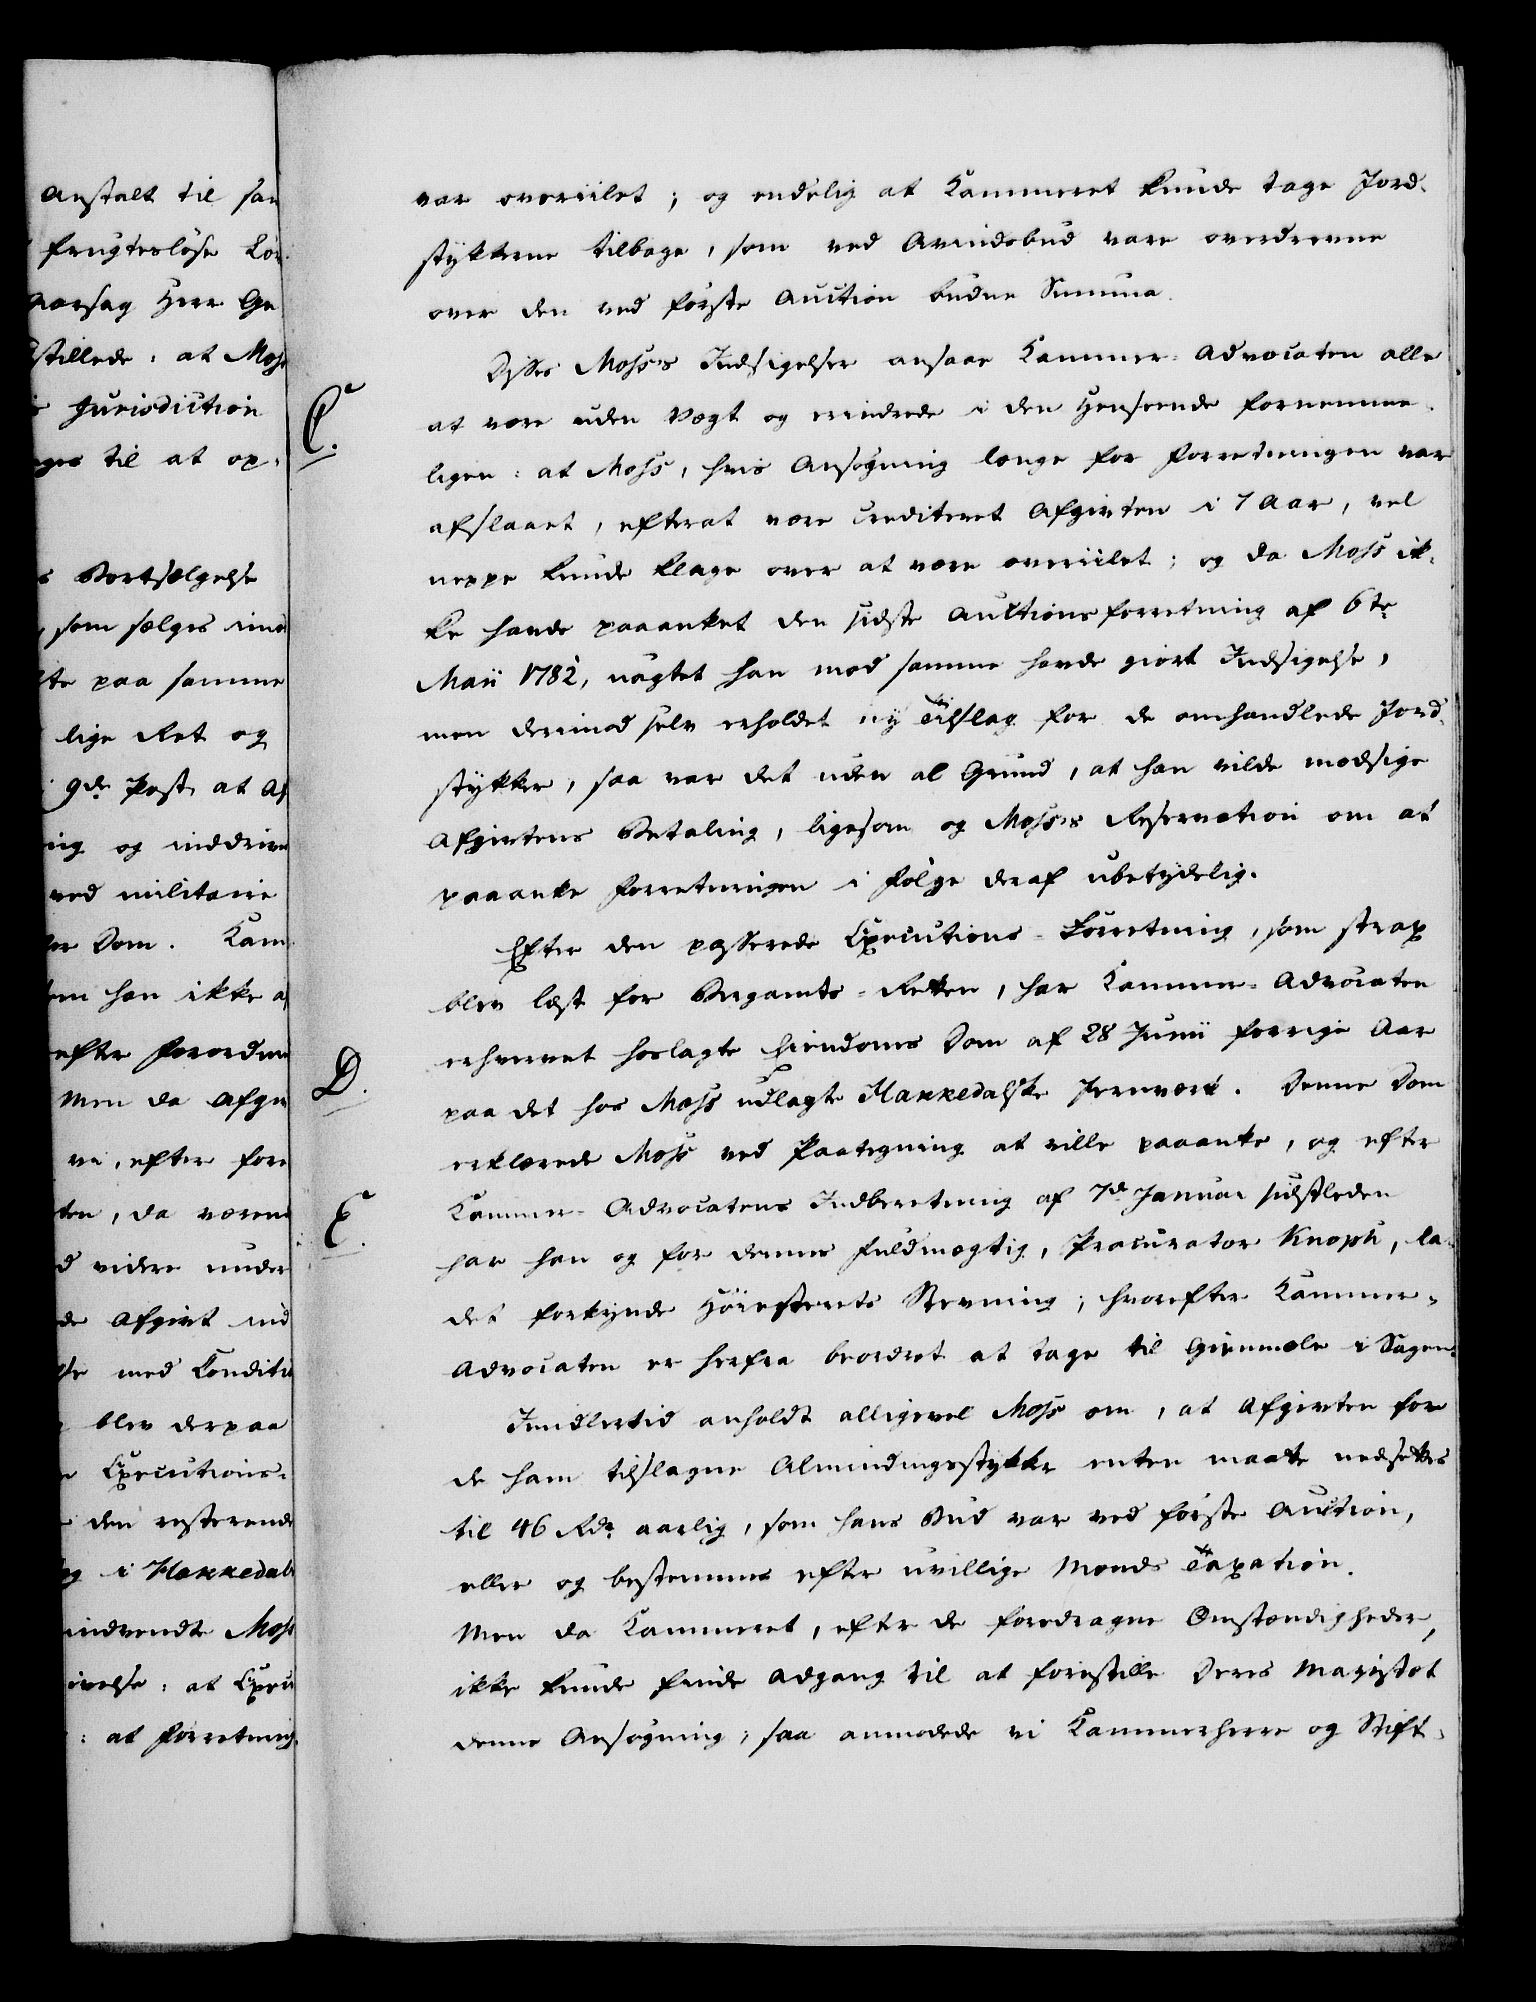 Anstalt til sam
frugtesløse Lov
Aarsag Herr Ge
stillede: at Moss
Jurisdiction
til at op-
Bortsælgelse
som sælges
paa samme
lige Ret og
9de Post, at Af
og inddrive
ved militaire
Dom. Kam
han ikke a
efter Forordni
Men da Afgi
vi, efter fore
ten, da væren
videre under
de Afgivt ind
med Conditi
blev derpaa
Executions-
den resterende
i Hakkedal
indvendte Moss
: at Execu
: at Forretning
var overiilet; og endelig at Kammeret kunde tage Jord-
stykkerne tilbage, som ved Avindsbud vare overdrevne
over den ved første Auction budne Summa.
C.
Disse Moss's Indsigelser ansaae Kammer-Advocaten alle
at være uden Vægt og erindrede i den Henseende fornemme-
ligen: at Moss, hvis Ansøgning længe før Forretningen var
afslaaet, efterat være crediteret Afgivten i 7 Aar, vel
neppe kunde klage over at være overiilet; og da Moss ik-
ke havde paaanket den sidste Auctionsforretning af 6te
Maii 1782, uagtet han mod samme havde giort Indsigelse,
men derimod selv erholdet ny Tilslag for de omhandlede Jord-
stykker, saa var det uden al Grund, at han vilde modsige
Afgivtens Betaling, ligesom og Moss's Reservation om at
paaanke Forretningen i følge deraf ubetydelig.
Efter den passerede Executions-Forretning, som strax
blev læst for Bergamts-Retten, har Kammer-Advocaten
D.
erhvervet hoslagte Eiendoms Dom af 28 Junii forrige Aar
paa det hos Moss udlagte Hakkedalske Jernværk. Denne Dom
erklærede Moss ved Paategning at ville paaanke, og efter
E.
Kammer-Advocatens Indberetning af 7de Januar sidstleden
har han og for dennes Fuldmægtig, Procurator Knoph, la-
det forkynde Høiesterets Stevning; hvorefter Kammer-
Advocaten er herfra beordret at tage til Gienmæle i Sagen.
Imidlertid anholdt alligevel Moss om, at Afgivten for
de ham tilslagne Almindingsstykker enten maatte nedsættes
til 46 Rdr aarlig, som hans Bud var ved første Auction,
eller og bestemmes efter uvillige Mænds Taxation.
Men da Kammeret, efter de foredragne Omstændigheder,
ikke kunde finde Adgang til at forestille Deres Majestet
denne Ansøgning; saa anmodede vi Kammerherre og Stift-